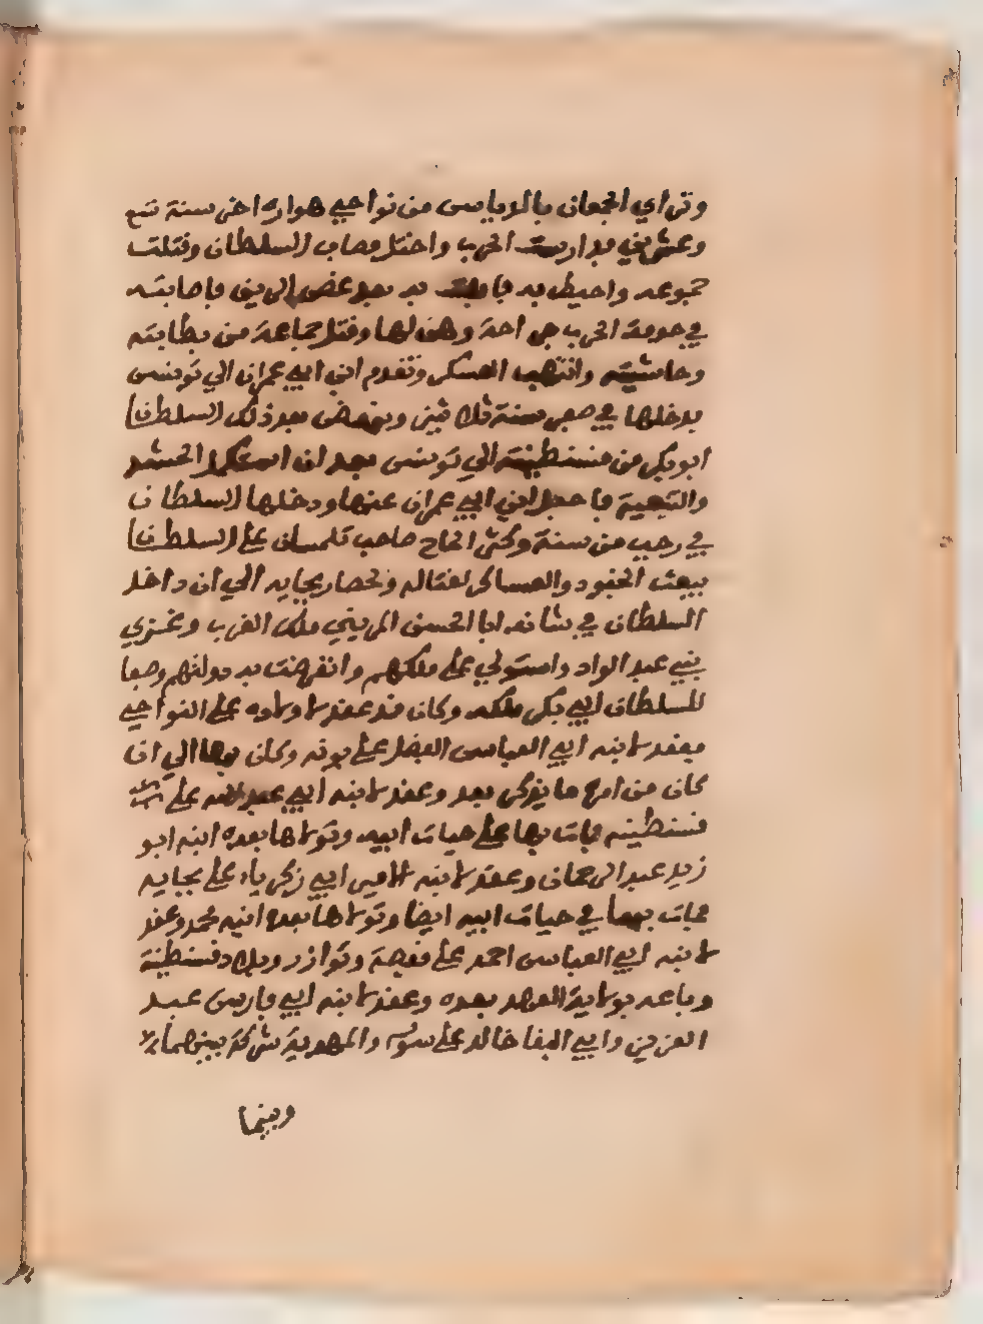 وتراي الجمعان بالرياس من نواحي هواره اخر سنة تسع
وعشرين فدارت الحرب واختل مصاب السلطان وقتلت
جموعه واحيط به فا به بعد عض فاصابته
في حومة الحرب جراحة وهن لها وقتل جماعة من بطانته
وحاشيته وانتهب العسكر وتقدم ابن ابي عمران الي تونس
فدخلها في صفر سنة ثلاثين ونهض بعد ذلك السلطان
ابوبكر من قسنطينة الي تونس بعد ان استكمل الحشد
والتعبية فاجفل ابن ابي عمران عنها ودخلها السلطان
في رجب من سنة وكثر الحاح صاحب تلمسان علي السلطان
ببعث الجنود والعساكر لقتاله ولحصار بجاية الي ان داخل
السلطان في شانه ابا الحسن المريني ملك الغرب وغزي
بني عبد الواد واستولي علي ملكهم وانقرضت به دولتهم وصفا
للسلطان ابي بكر ملكه وكان قد عقد لاولاده علي النواحي
فعقد لابنه ابي العباس الفضل علي بونه وكان بها الي ان
كان من امره ما يذكر بعد وعقد لابنه ابي عبد الله علي
قسنطينه فمات بها علي حيات ابيه وتولاها بعده ابنه ابو
زيد عبد الرحمان وعقد لابنه الامير ابي زكرياء علي بجاية
فمات بها في حيات ابيه ايضا وتولاها بعده ابنه محمد وعقد
لابنه ابي العباس احمد علي قفصة وتوازر وبلاد قسنطينة
وباعه بولاية العهد بعده وعقد لابنه ابي فارس عبد
العزيز وابي البقا خالد علي سوسه والمهدية شركة بينهما
وبينما